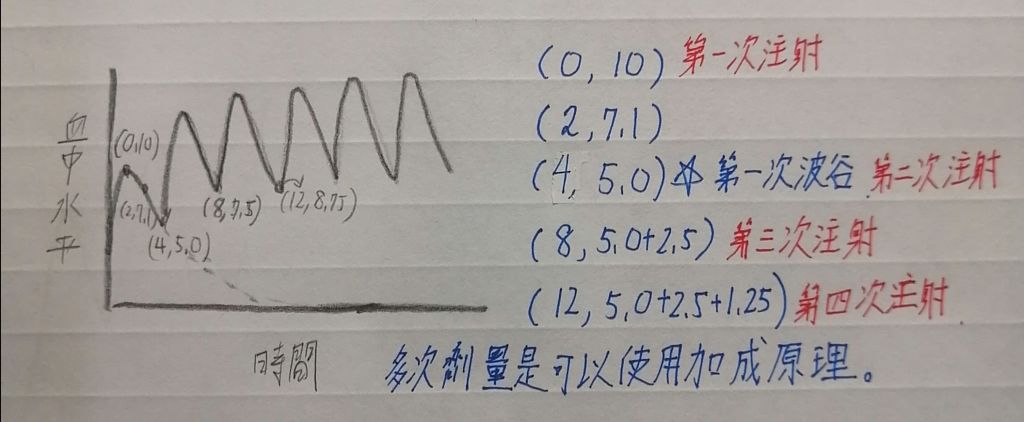 血中水平
(0,10)
(2,7,1)
(4,5,0)
(8,7,5)
(12,8,75)
時間
(0, 10) 第一次注射
(2, 7,1)
(4, 5,0)☆ 第一次波谷 第二次注射
(8, 5,0+2,5) 第三次注射
(12, 5,0+2,5+1,25) 第四次注射
多次劑量是可以使用加成原理。